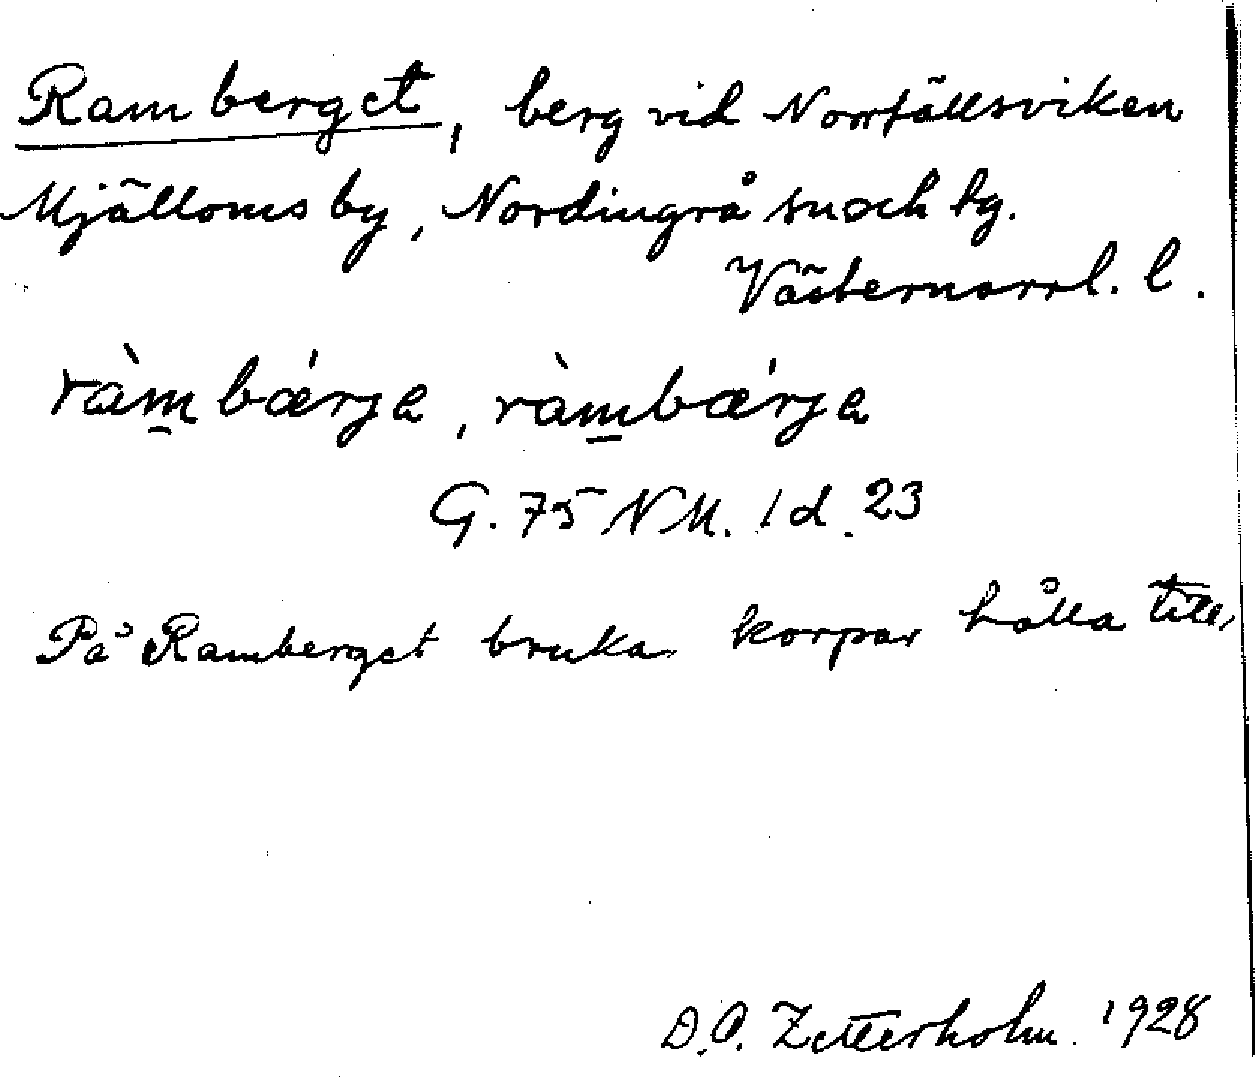 Ramberget, berg vid Norrfällsviken
Mjälloms by, Nordingrå sn och tg.
Västernorrl. l.
ràm̲bǽrja, ràm̲bǽrja
G. 75 NM. 1 d. 23
På Ramberget bruka korpar hålla till,
D.O. Zetterholm. 1928